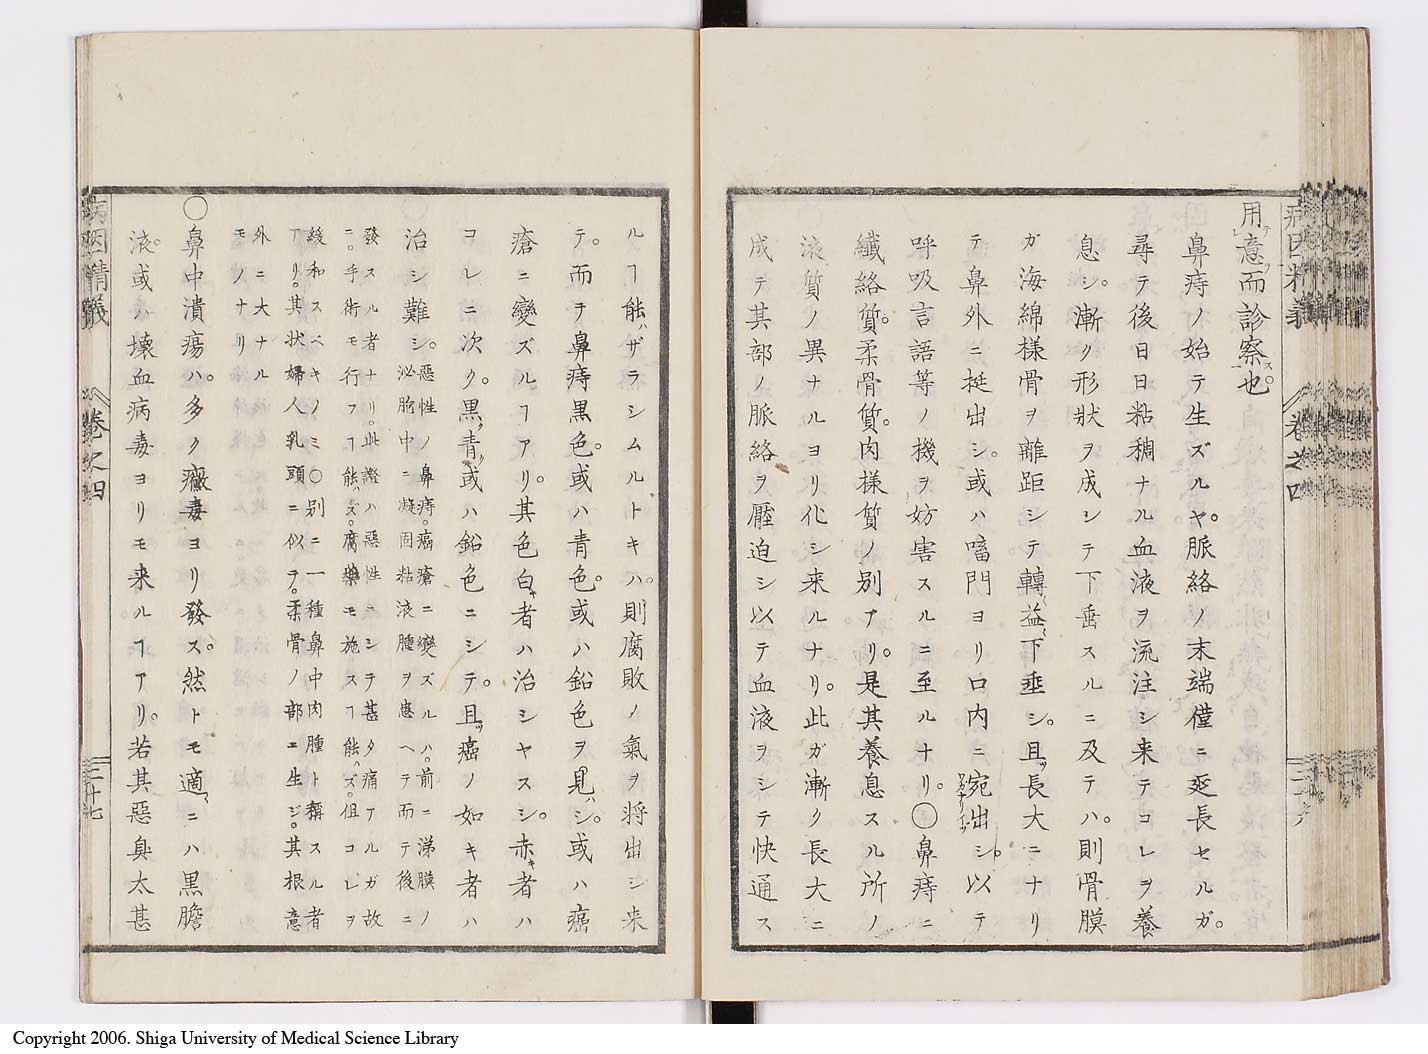 病因精義 巻之四
用意而診察ス。也
鼻痔ノ始テ生ズルヤ。脈絡ノ末端僅ニ延長セルガ。
尋テ後日日粘稠ナル血液ヲ流注シ来テコレヲ養
息シ。漸ク形状ヲ成シテ下垂スルニ及テハ。則骨膜
ガ海綿様骨ヲ離距シテ轉益下垂シ。且ツ長大ニナリ
テ鼻外ニ挺出シ。或ハ噏門ヨリ口内ニ宛出シ。以テ
呼吸言語等ノ機ヲ妨害スルニ至ルナリ。〇鼻痔ニ
纖絡質。柔骨質。肉様質ノ別アリ。是其養息スル所ノ
液質ノ異ナルヨリ化シ来ルナリ。此ガ漸ク長大ニ
成テ其部ノ脈絡ヲ壓迫シ以テ血液ヲシテ快通ス
ルヿ能ハザラシムルトキハ。則腐敗ノ氣ヲ将出シ来
テ。而テ鼻痔黒色。或ハ青色。或ハ鉛色ヲ見ハシ。或ハ癌
瘡ニ變ズルヿアリ。其色白キ者ハ治シヤスシ。赤キ者ハ
コレニ次ク。黒青或ハ鉛色ニシテ。且ツ癌ノ如キ者ハ
治シ難シ。
惡性ノ鼻痔。癌瘡ニ變ズルハ。前ニ涕膜ノ
泌胞中ニ凝固粘液腫ヲ患ヘテ而テ後ニ
發スル者ナリ。此證ハ惡性ニシテ甚タ痛アルガ故
ニ。手術モ行フヿ能ハズ。腐藥モ施スヿ能ハズ。但コレヲ
緩和スベキノミ〇別ニ一種鼻中肉腫ト稱スル者
アリ。其状婦人乳頭ニ似テ。柔骨ノ部ニ生ジ。其根意
外ニ大ナル
モノナリ
〇鼻中潰瘍ハ。多ク黴毒ヨリ發ス。然トモ適ニハ黒膽
液。或ハ壊血病毒ヨリモ来ルヿアリ。若其惡臭太甚
病因精義 巻之四 二十七
Copyright 2006. Shiga University of Medical Science Library